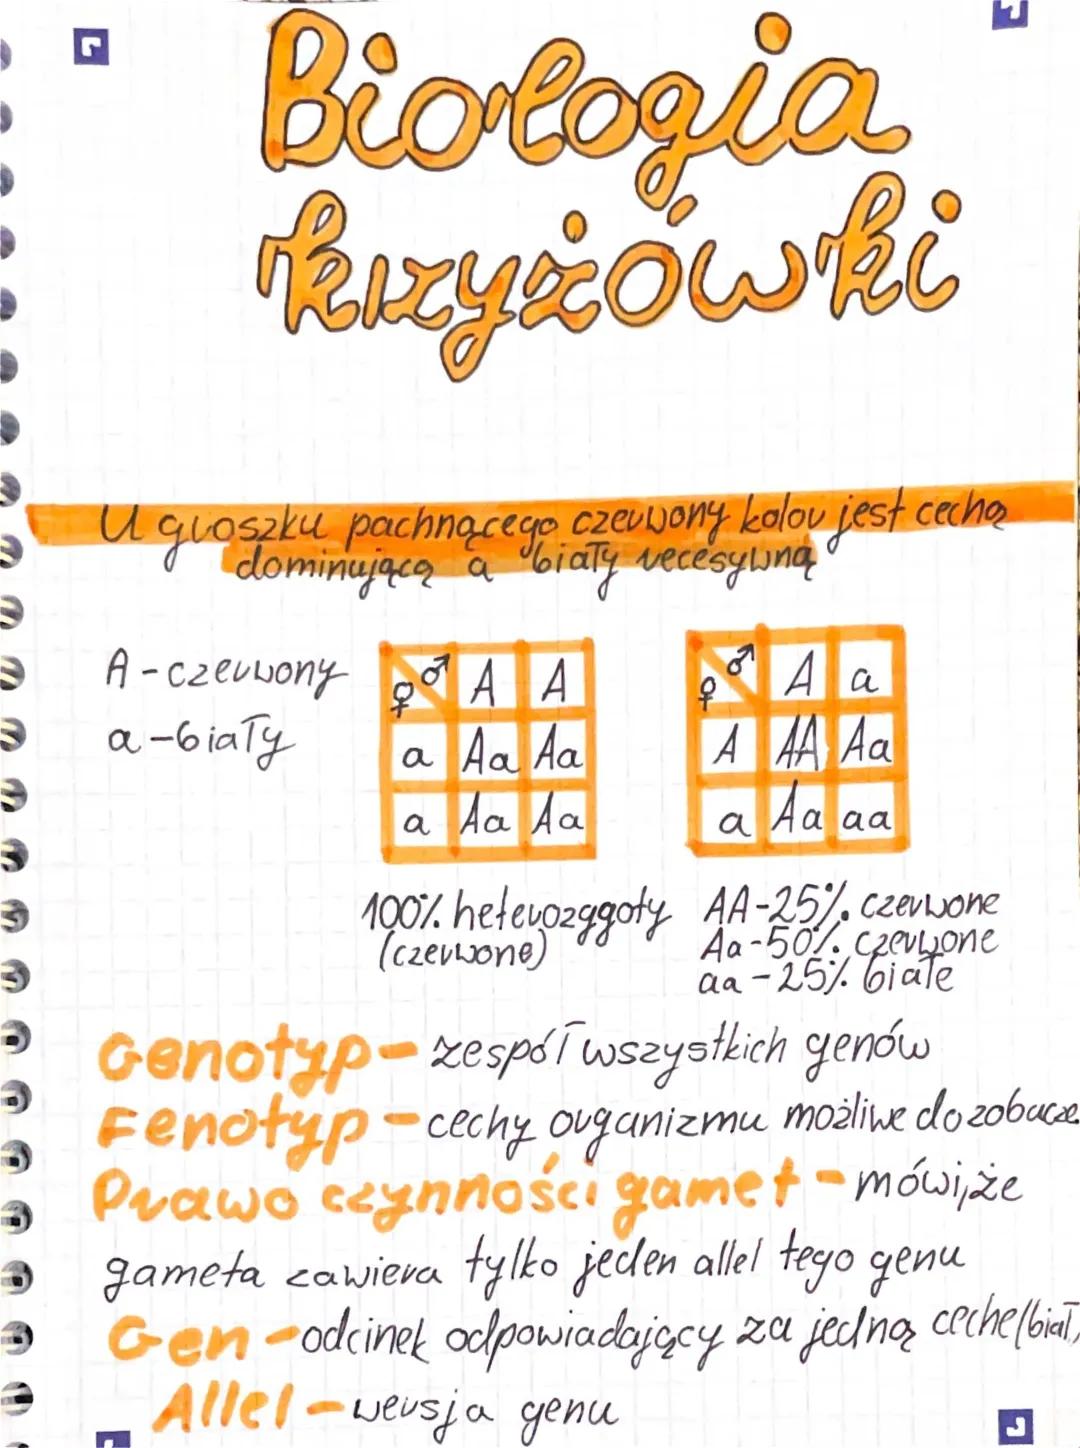 Biologia
krzyżówki
U groszku pachnącego czerwony kolor jest cechą
dominującą a biały recesywną
A - czerwony
a - biały
♀ ♂ A A
a Aa Aa
a Aa Aa
♀ ♂ A a
A AA Aa
a Aa aa
100% heterozygoty
(czerwone)
AA - 25% czerwone
Aa - 50% czerwone
aa - 25% białe
Genotyp - zespół wszystkich genów
Fenotyp - cechy organizmu możliwe do zobacze
Prawo czynności gamet - mówi, że
gameta zawiera tylko jeden allel tego genu
Gen - odcinek odpowiadający za jedną cechę (biał,
Allel - wersja genu